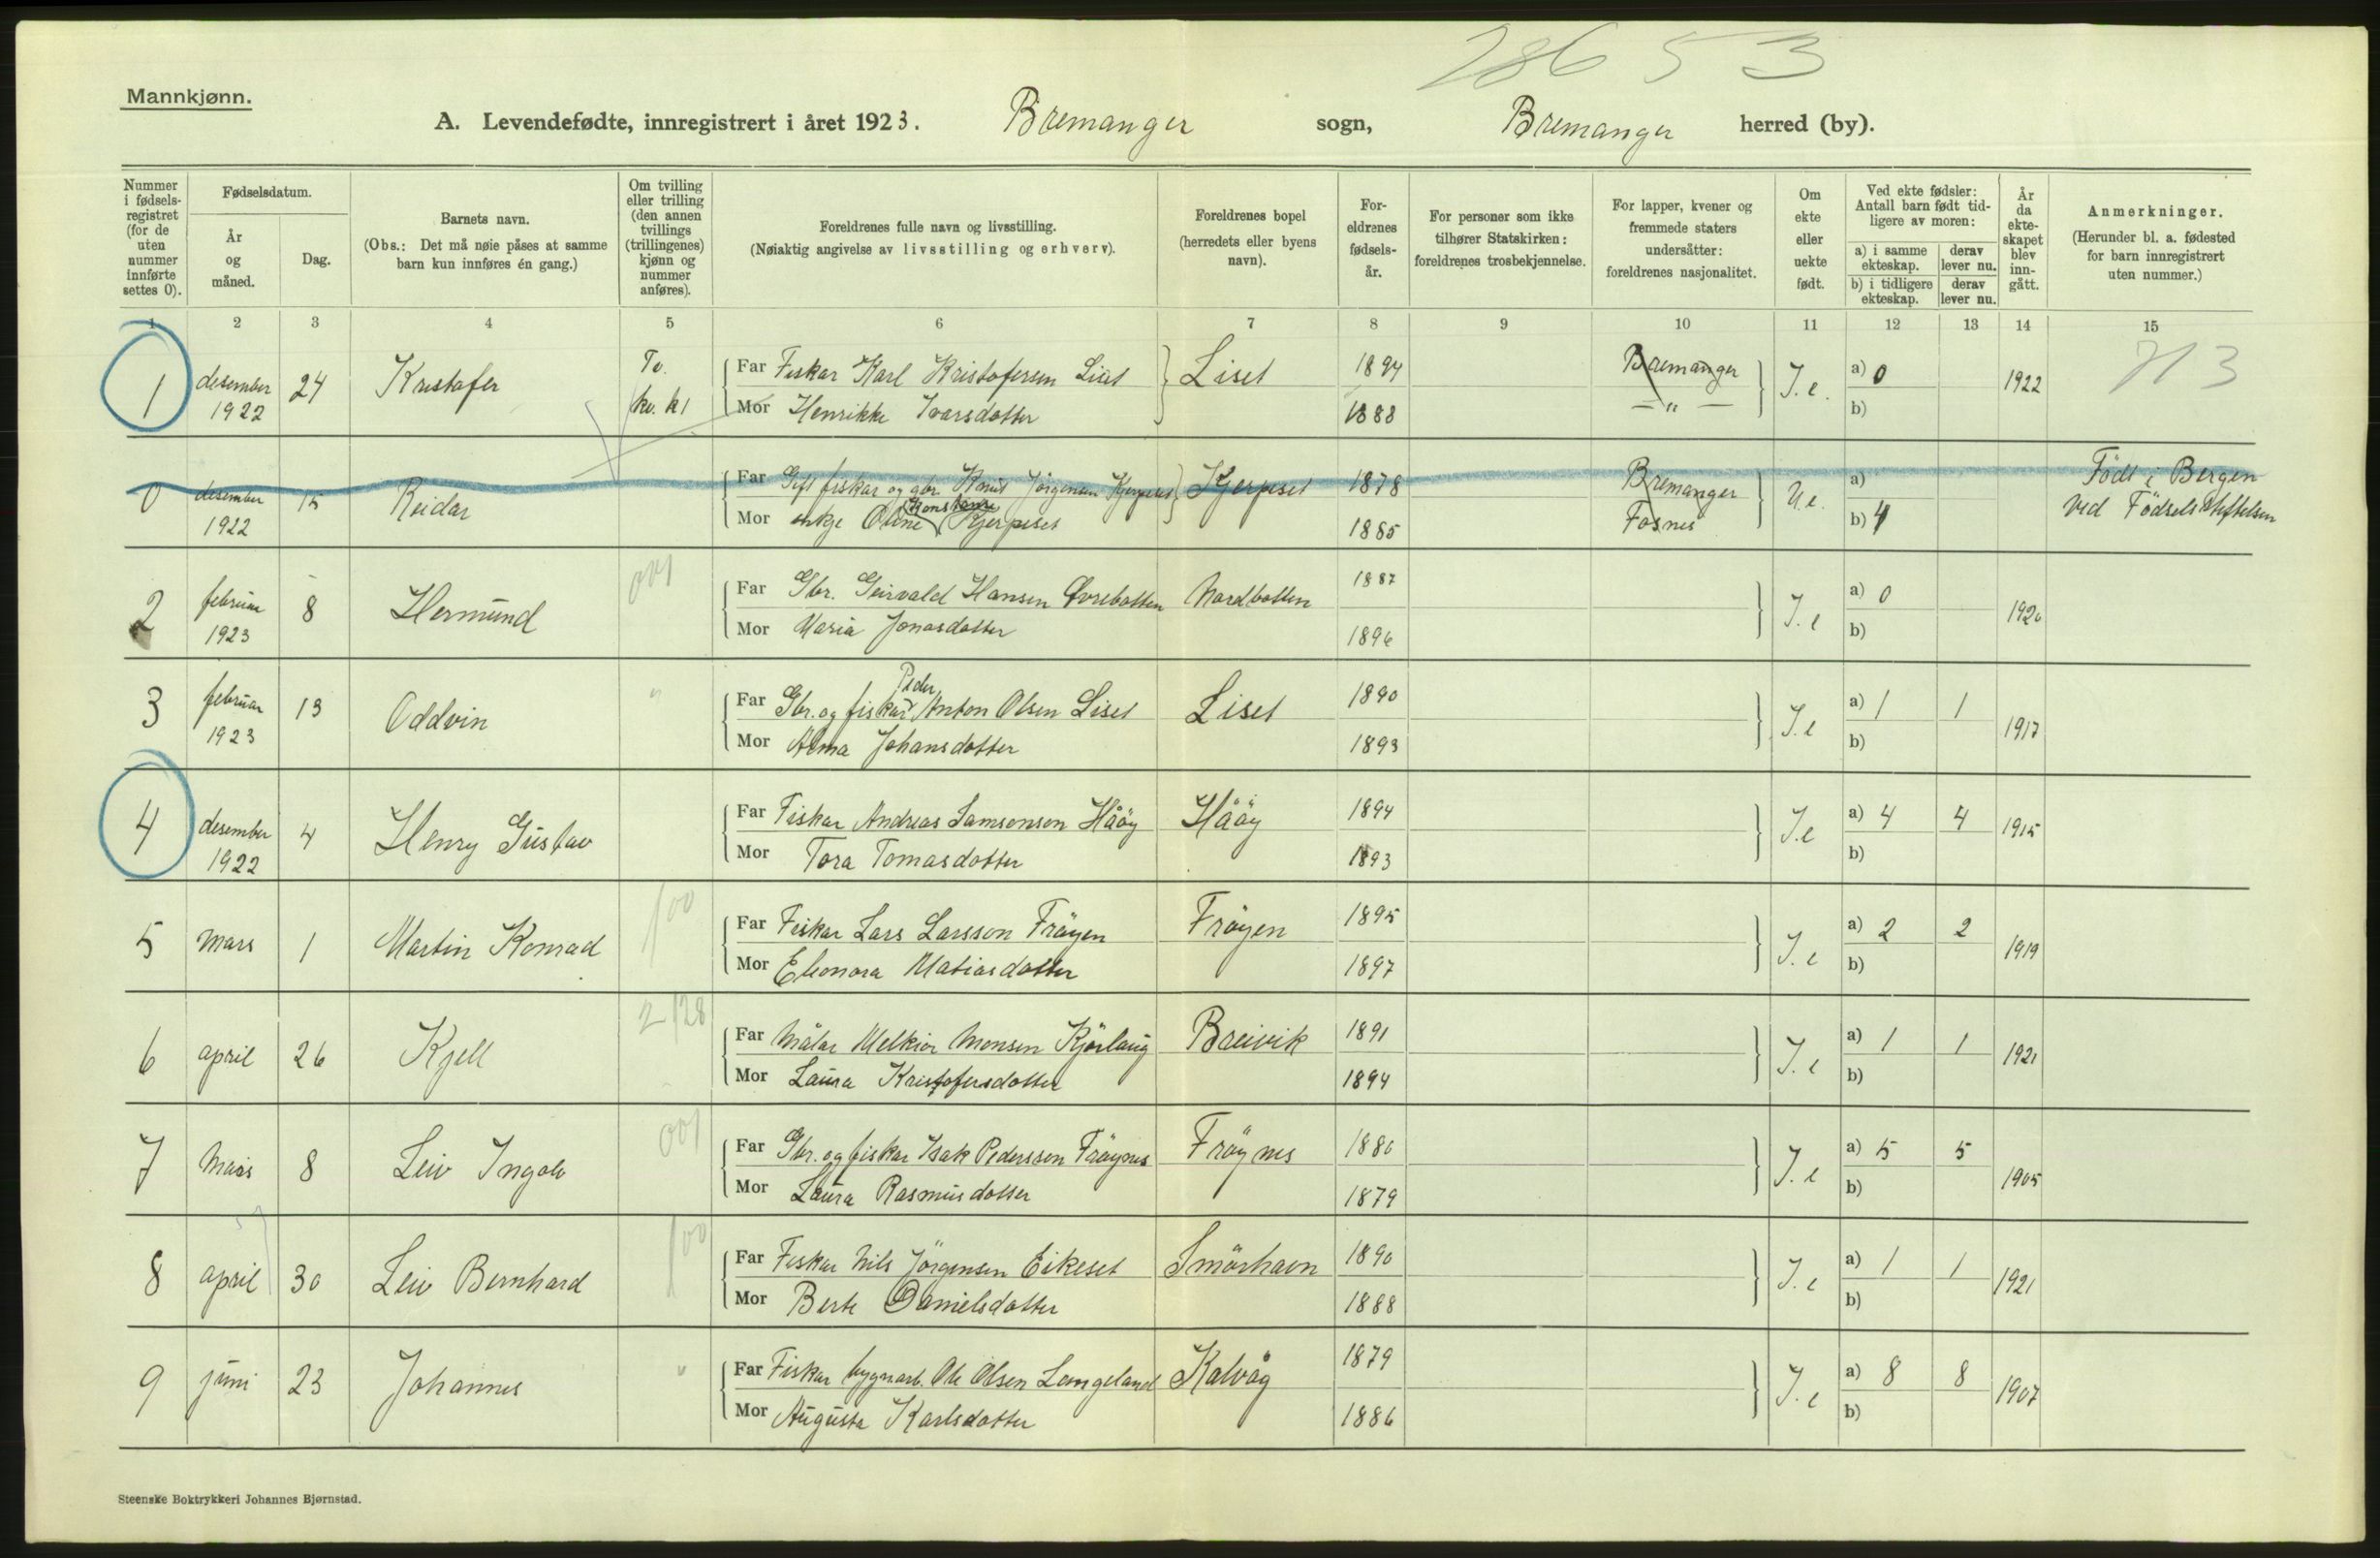 28653
Mannkjønn.
A. Levendefødte, innregistrert i året 1923. Bremanger sogn, Bremanger herred (by).
Nummer i fødsels-registret (for de uten nummer innførte settes 0).
Fødselsdatum.
År og måned.
Dag.
Barnets navn.
(Obs.: Det må nøie påses at samme barn kun innføres én gang.)
Om tvilling eller trilling (den annen tvillings (trillingenes) kjønn og nummer anføres).
Foreldrenes fulle navn og livsstilling.
(Nøiaktig angivelse av livsstilling og erhverv).
Foreldrenes bopel (herredets eller byens navn).
For-eldrenes fødsels-år.
For personer som ikke tilhører Statskirken: foreldrenes trosbekjennelse.
For lapper, kvener og fremmede staters undersåtter: foreldrenes nasjonalitet.
Om ekte eller uekte født.
Ved ekte fødsler: Antall barn født tid-ligere av moren:
a) i samme ekteskap.
derav lever nu.
b) i tidligere ekteskap.
derav lever nu.
År da ekte-skapet blev inn-gått.
Anmerkninger.
(Herunder bl. a. fødested for barn innregistrert uten nummer.)
1 2 3 4 5 6 7 8 9 10 11 12 13 14 15
1 desember 1922 24 Kristofer Tv. kv. k1
Far Fiskar Karl Kristofersen Liset Liset 1894 Bremanger I.e. a) 0 1922 713
Mor Henrikke Ivarsdotter 1888 — " — b)
0 desember 1922 15 Reidar
Far Gift fiskar og gbr. Knut Jörgensen Kjerpeset Kjerpeset 1878 Bremanger U.e. a) Födt i Bergen
Mor enkje Oline Konstanse Kjerpeset 1885 Fosnes b) 4 ved Födselsstiftelsen
2 februar 1923 8 Hermund 001
Far Gbr. Geirvald Hansen Øvrebotten Nordbotten 1887 I.e a) 0 1920
Mor Maria Jonasdotter 1896 b)
3 februar 1923 13 Oddvin "
Far Gbr. og fiskar Peder Anton Olsen Liset Liset 1890 I.e a) 1 1 1917
Mor Alma Johansdotter 1893 b)
4 desember 1922 4 Henry Gustav
Far Fiskar Andreas Samsonson Håöy Håöy 1894 I.e a) 4 4 1915
Mor Tora Tomasdotter 1893 b)
5 mars 1 Martin Konrad 100
Far Fiskar Lars Larsson Fröyen Fröyen 1895 I.e a) 2 2 1919
Mor Eleonora Matiasdotter 1897 b)
6 april 26 Kjell 2 128
Far Målar Melkior Monsen Kjörlaug Breivik 1891 I.e a) 1 1 1921
Mor Laura Kristofersdotter 1894 b)
7 Mars 8 Leiv Ingolv 001
Far Gbr. og fiskar Isak Pedersson Fröynes Fröynes 1880 I.e a) 5 5 1905
Mor Laura Rasmusdotter 1879 b)
8 april 30 Leiv Bernhard 100
Far Fiskar Nils Jörgensen Eikeset Smörhavn 1890 I.e a) 1 1 1921
Mor Berte Danielsdotter 1888 b)
9 juni 23 Johannes "
Far Fiskar bygnarb. Ole Olsen Langeland Kalvåg 1879 I.e a) 8 8 1907
Mor Augusta Karlsdotter 1886 b)
Steenske Boktrykkeri Johannes Bjørnstad.